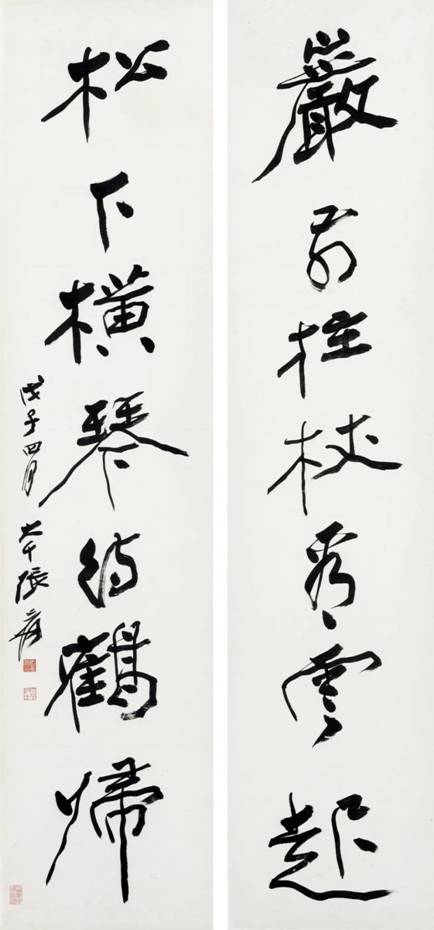 巖前拄杖看雲起
松下橫琴待鶴歸
戊子四月 大千張爰